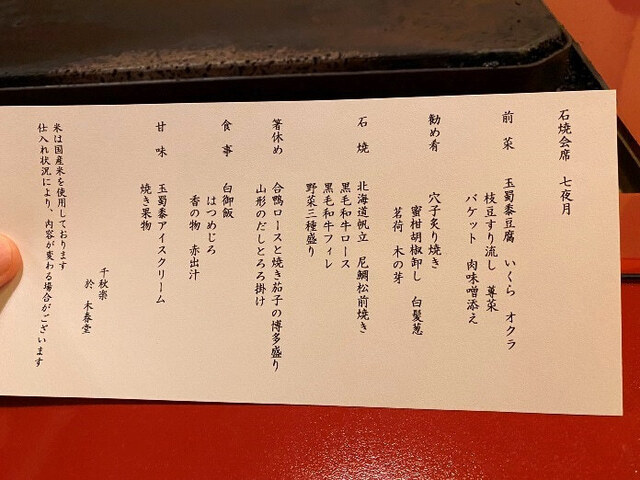 石焼会席　七夜月
前菜　玉蜀黍豆腐　いくら　オクラ
枝豆すり流し　蓴菜
バケット　肉味噌添え
勧め肴　穴子炙り焼き
蜜柑胡椒卸し　白髪葱
茗荷　木の芽
石焼　北海道帆立　尼鯛松前焼き
黒毛和牛ロース
黒毛和牛フィレ
野菜三種盛り
箸休め　合鴨ロースと焼き茄子の博多盛り
山形のだしとろろ掛け
食事　白御飯
はつめじろ
香の物　赤出汁
甘味　玉蜀黍アイスクリーム
焼き果物
千秋楽
於　木春堂
米は国産米を使用しております
仕入れ状況により、内容が変わる場合がございます